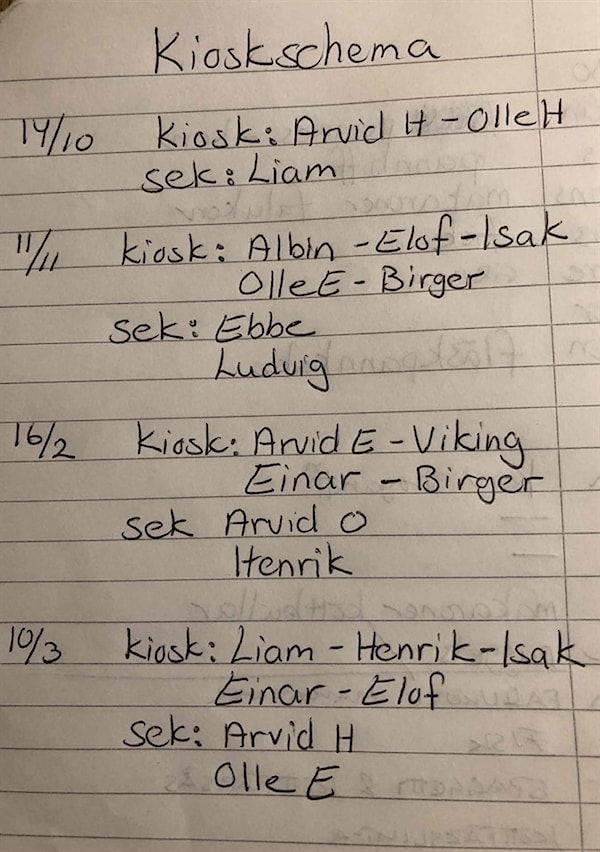 Kioskschema
14/10 Kiosk: Arvid H - Olle H
sek: Liam
11/11 kiosk: Albin - Elof - Isak
Olle E - Birger
sek: Ebbe
Ludvig
16/2 Kiosk: Arvid E - Viking
Einar - Birger
sek Arvid O
Henrik
10/3 kiosk: Liam - Henrik - Isak
Einar - Elof
sek: Arvid H
Olle E